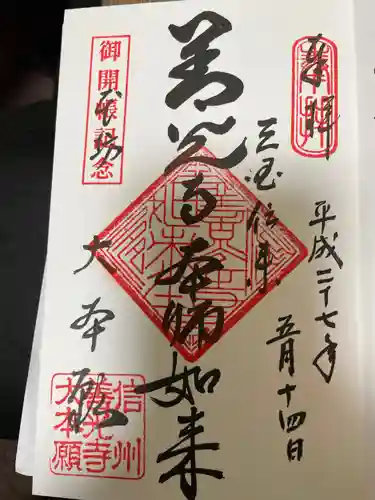 奉拝
平成二十七年
五月十四日
三国伝来
善光寺本師如来
御開帳記念
大本願
信州
善光寺
大本願